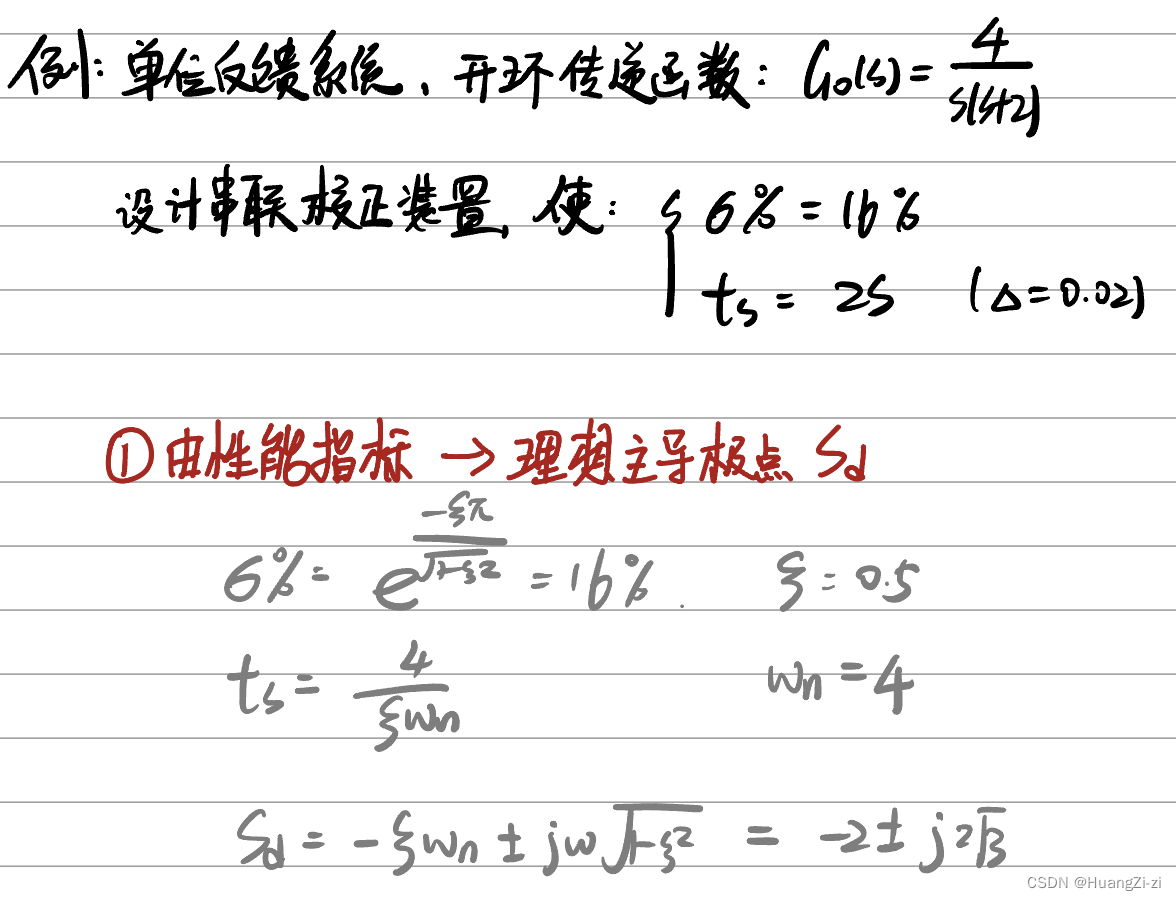 例: 单位反馈系统, 开环传递函数: G₀(s) = 4/(s(s+2))
设计串联校正装置, 使: { σ% = 16%
ts = 2s (Δ=0.02)
① 由性能指标 → 理想主导极点 Sd
σ% = e^(-ξπ/√(1-ξ²)) = 16%. ξ = 0.5
ts = 4/(ξωn) ωn = 4
Sd = -ξωn ± jω√(1-ξ²) = -2 ± j2√3
CSDN @HuangZi-zi